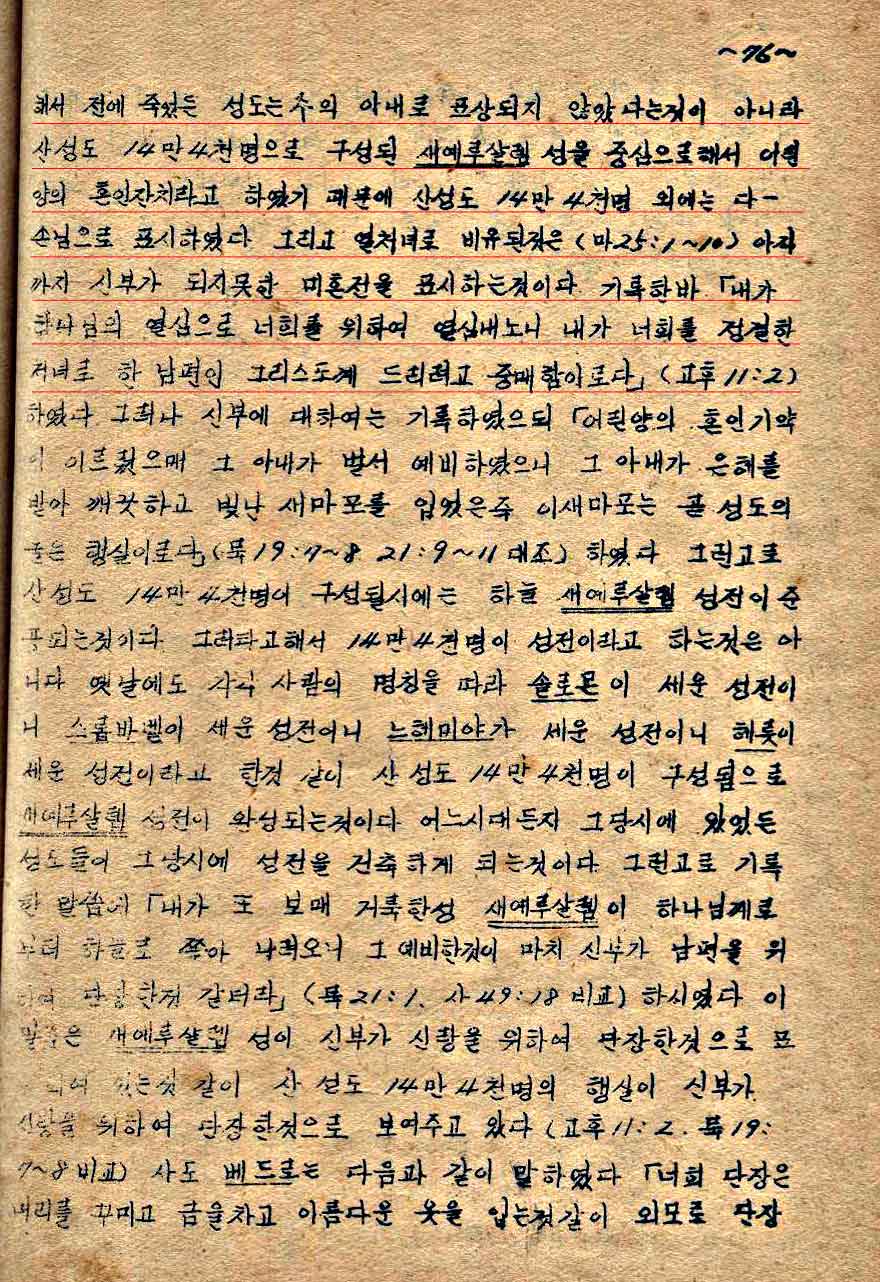 ~76~
해서 전에 죽었든 성도는 주의 아내로 표상되지 않았다는것이 아니라
산성도 14만4천명으로 구성된 새예루살렘 성을 중심으로해서 어린
양의 혼인잔치라고 하였기 때문에 산성도 14만4천명 외에는 다-
손님으로 표시하였다 그리고 열처녀로 비유된것은 (마25:1~10) 아직
까지 신부가 되지못한 미혼전을 표시하는것이다 기록한바 「내가
하나님의 열심으로 너희를 위하여 열심내노니 내가 너희를 정결한
처녀로 한 남편인 그리스도께 드리려고 중매함이로다」 (고후11:2)
하였다 그러나 신부에 대하여는 기록하였으되 「어린양의 혼인기약
이 이르렀으매 그 아내가 벌서 예비하였으니 그 아내가 은혜를
받아 깨끗하고 빛난 새마포를 입었은즉 이새마포는 곧 성도의
옳은 행실이로다」(묵19:7~8 21:9~11대조) 하였다 그런고로
산성도 14만4천명이 구성될시에는 하늘 새예루살렘 성전이 준
공되는것이다 그러타고해서 14만4천명이 성전이라고 하는것은 아
니다 옛날에도 각식 사람의 명칭을 따라 솔로몬이 세운 성전이
니 스룹바벨이 세운 성전이니 느헤미야가 세운 성전이니 헤롯이
세운 성전이라고 한것 같이 산 성도 14만4천명이 구성됨으로
새예루살렘 성전이 완성되는것이다 어느시대든지 그당시에 있었든
성도들이 그당시에 성전을 건축하게 되는것이다 그런고로 기록
한 말씀에 「내가 또 보매 거룩한성 새예루살렘이 하나님게로
부터 하늘로 쫓아 나려오니 그 예비한것이 마치 신부가 남편을 위
하여 단장한것 갈터라」 (묵21:1、사49:18비교) 하시였다 이
말씀은 새예루살렘 성이 신부가 신랑을 위하여 단장한것으로 표
있는것 같이 산 성도 14만4천명의 행실이 신부가
신랑을 위하여 단장한것으로 보여주고 있다 (고후11:2. 묵19:
7~8비교) 사도 베드로는 다음과 같이 말하였다 「너희 단장은
머리를 꾸미고 금을차고 아름다운 옷을 입는것같이 외모로 단장